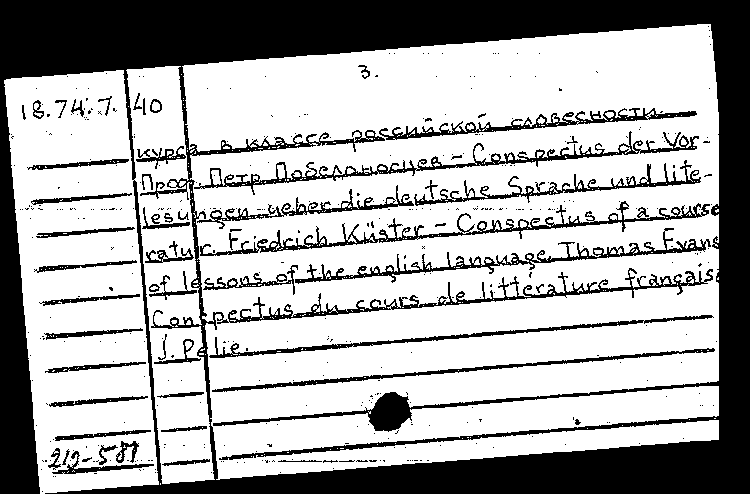 3.
18.74.7. 40
курса в классе российской словесности.
Проф. Петр Победоносцев - Conspectus der Vor-
lesungen ueber die deutsche Sprache und lite-
ratur. Friedrich Küster - Conspectus of a course
of lessons of the english language. Thomas Evans
Conspectus du cours de littérature français
J. Pelie.
212-581